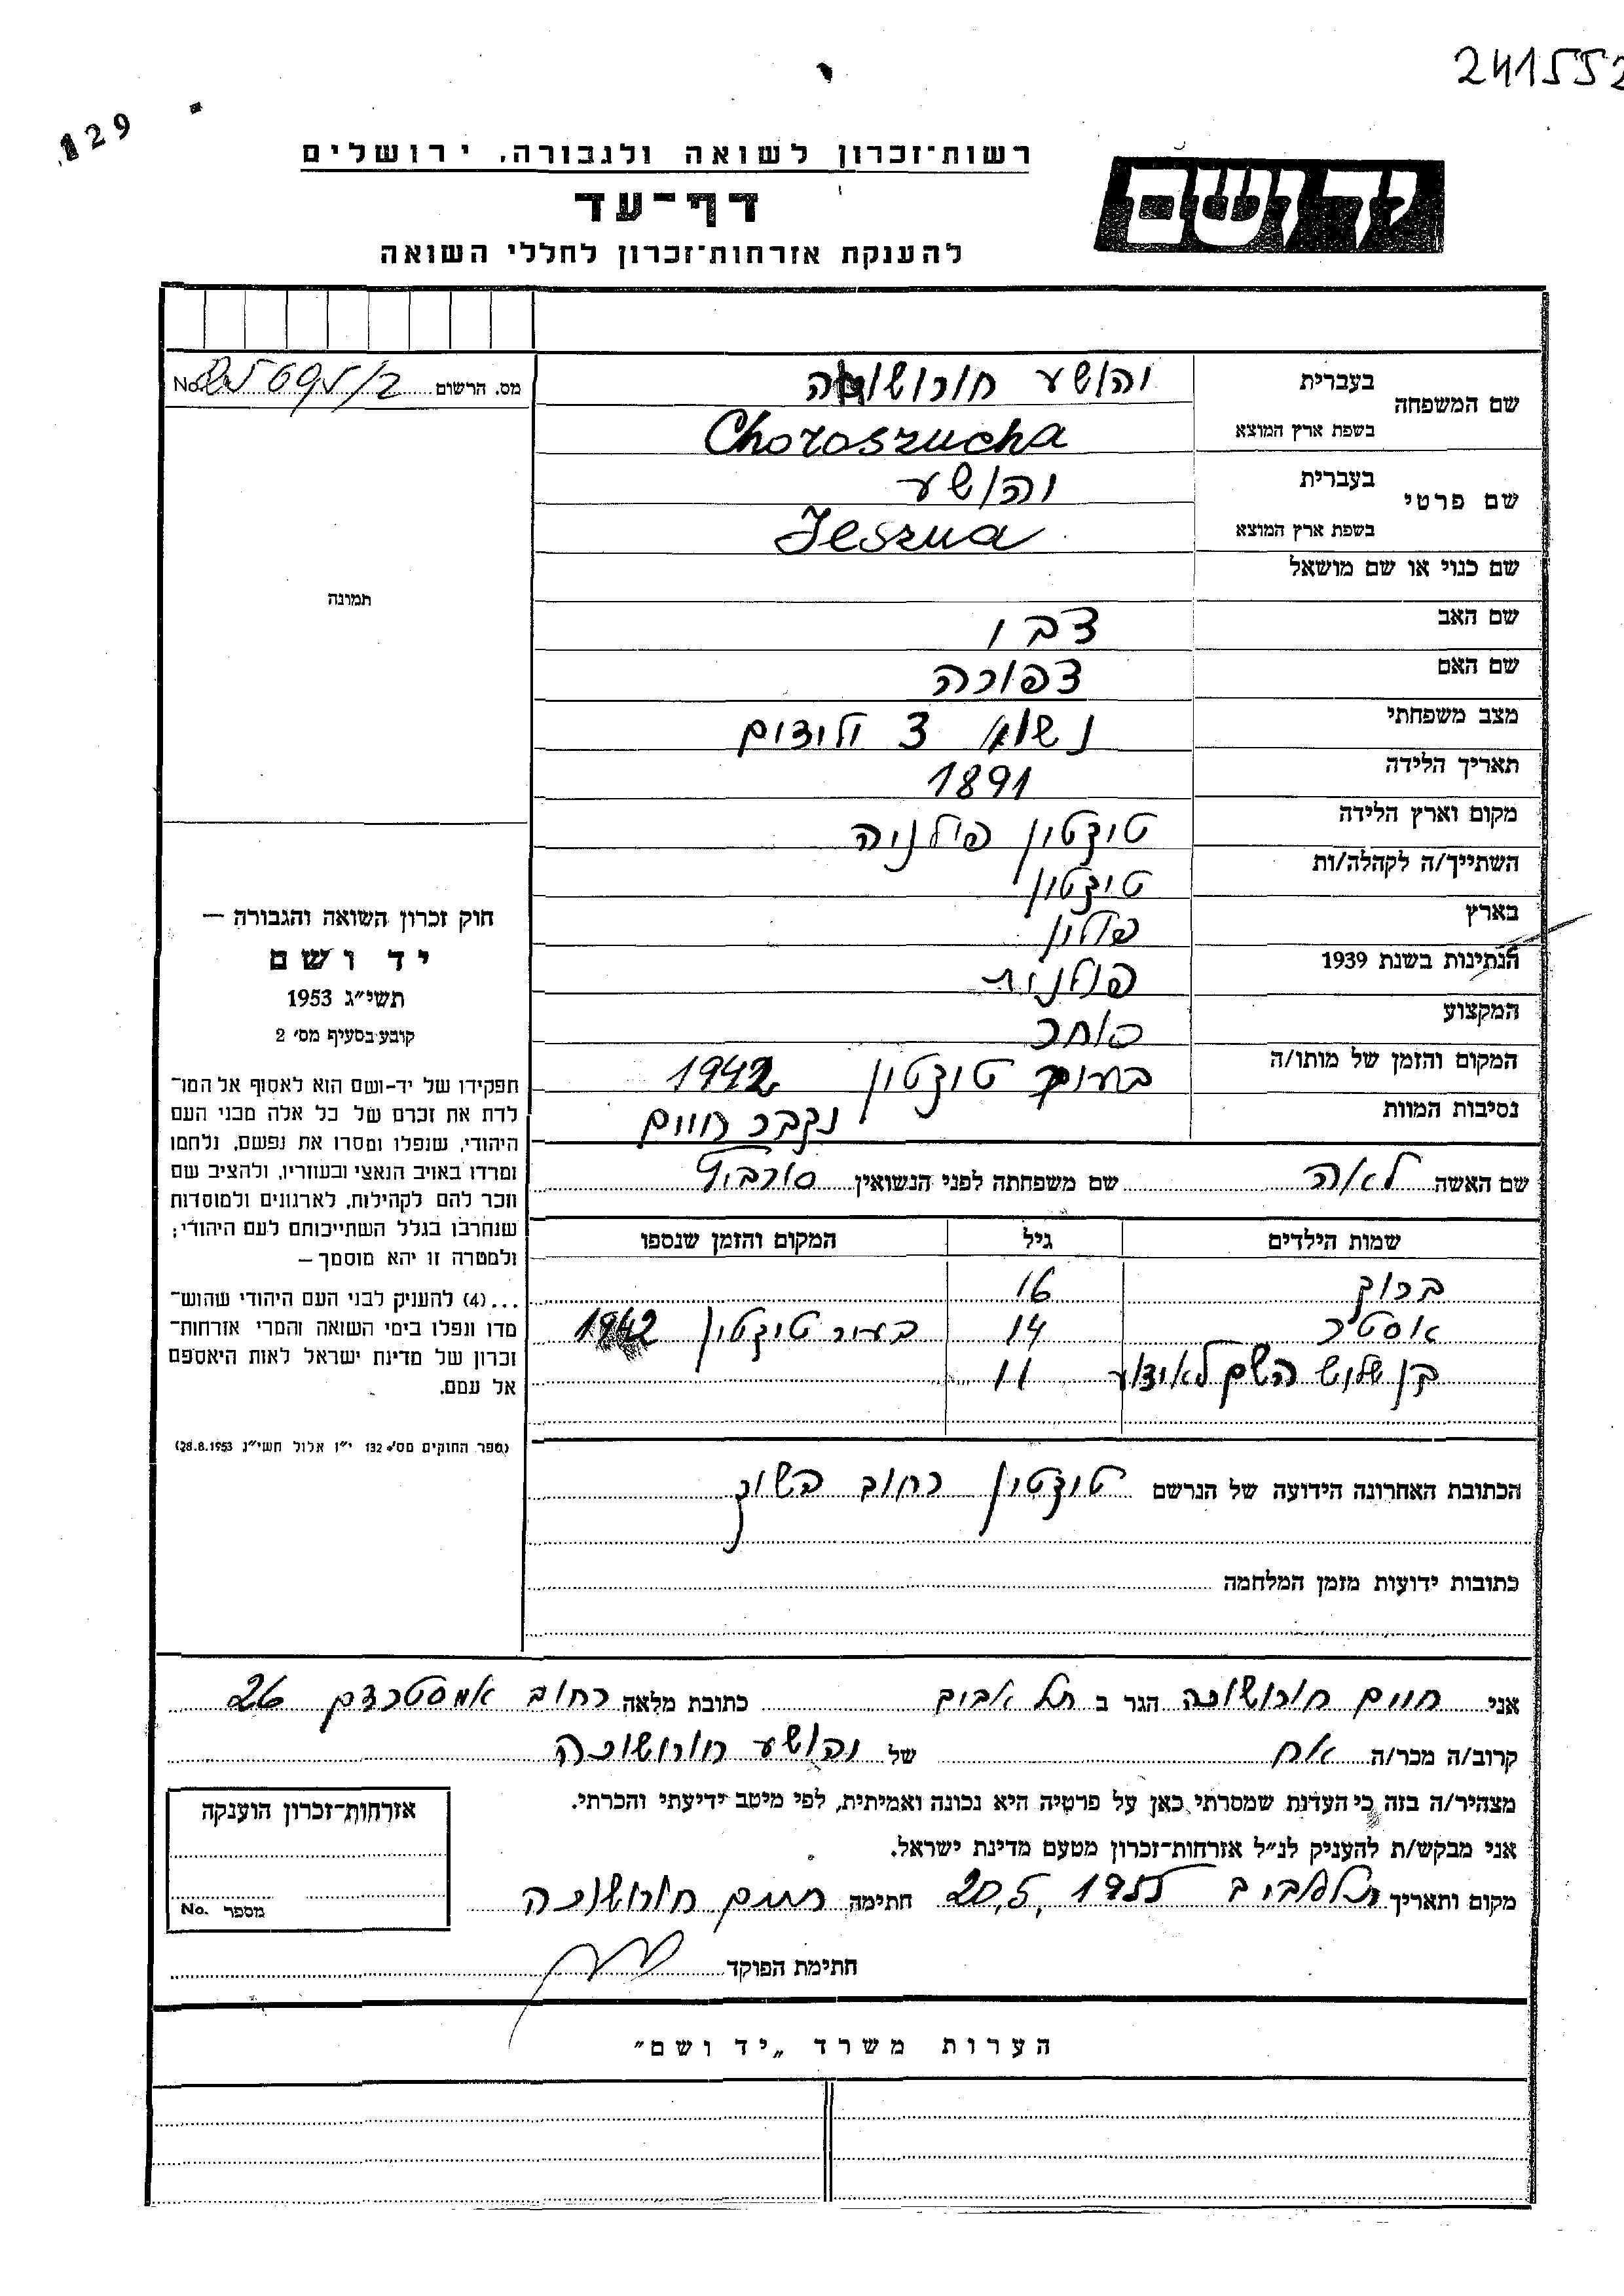 241552
129
רשות־זכרון לשואה ולגבורה, ירושלים
יד ושם
דף־עד
להענקת אזרחות־זכרון לחללי השואה
מס. הרשום 25695/2 No
שם המשפחה
בעברית יהושע חורושוכה
בשפת ארץ המוצא Choroszucha
שם פרטי
בעברית יהושע
בשפת ארץ המוצא Jeszua
שם כנוי או שם מושאל
שם האב צבי
שם האם צפורה
מצב משפחתי נשוא 3 ילידים
תאריך הלידה 1891
מקום וארץ הלידה טוצטין פולניה
השתייך/ה לקהלה/ות טוצטין
בארץ פולין
הנתינות בשנת 1939 פולנית
המקצוע סוחר
המקום והזמן של מותו/ה בעיר טוצטין 1942
נסיבות המוות נקבר חיים
תמונה
חוק זכרון השואה והגבורה —
יד ושם
תשי״ג 1953
קובע בסעיף מס׳ 2
תפקידו של יד-ושם הוא לאסוף אל המו־
לדת את זכרם של כל אלה מבני העם
היהודי, שנפלו ומסרו את נפשם, נלחמו
ומרדו באויב הנאצי ובעוזריו, ולהציב שם
וזכר להם לקהילות, לארגונים ולמוסדות
שנחרבו בגלל השתייכותם לעם היהודי;
ולמטרה זו יהא מוסמך —
...(4) להעניק לבני העם היהודי שהוש־
מדו ונפלו בימי השואה והמרי אזרחות־
זכרון של מדינת ישראל לאות היאספם
אל עמם.
(ספר החוקים מס׳ 132 י״ז אלול תשי״ג 28.8.1953)
שם האשה לאה שם משפחתה לפני הנשואין
שמות הילדים גיל המקום והזמן שנספו
ברוך 16
אסטר 14 בעיר טוצטין 1942
בן שלוש השם לא ידוע 11
הכתובת האחרונה הידועה של הנרשם טוצטין רחוב השוק
כתובות ידועות מזמן המלחמה
אני חיים חורושוכה הגר ב תל אביב כתובת מלאה רחוב אמסטרדם 26
קרוב/ה מכר/ה אח של יהושע חורושוכה
מצהיר/ה בזה כי העדות שמסרתי כאן על פרטיה היא נכונה ואמיתית, לפי מיטב ידיעתי והכרתי.
אני מבקש/ת להעניק לנ״ל אזרחות־זכרון מטעם מדינת ישראל.
מקום ותאריך תל אביב 20,5,1955 חתימה חיים חורושוכה
חתימת הפוקד
אזרחות־זכרון הוענקה
מספר No.
הערות משרד „יד ושם״